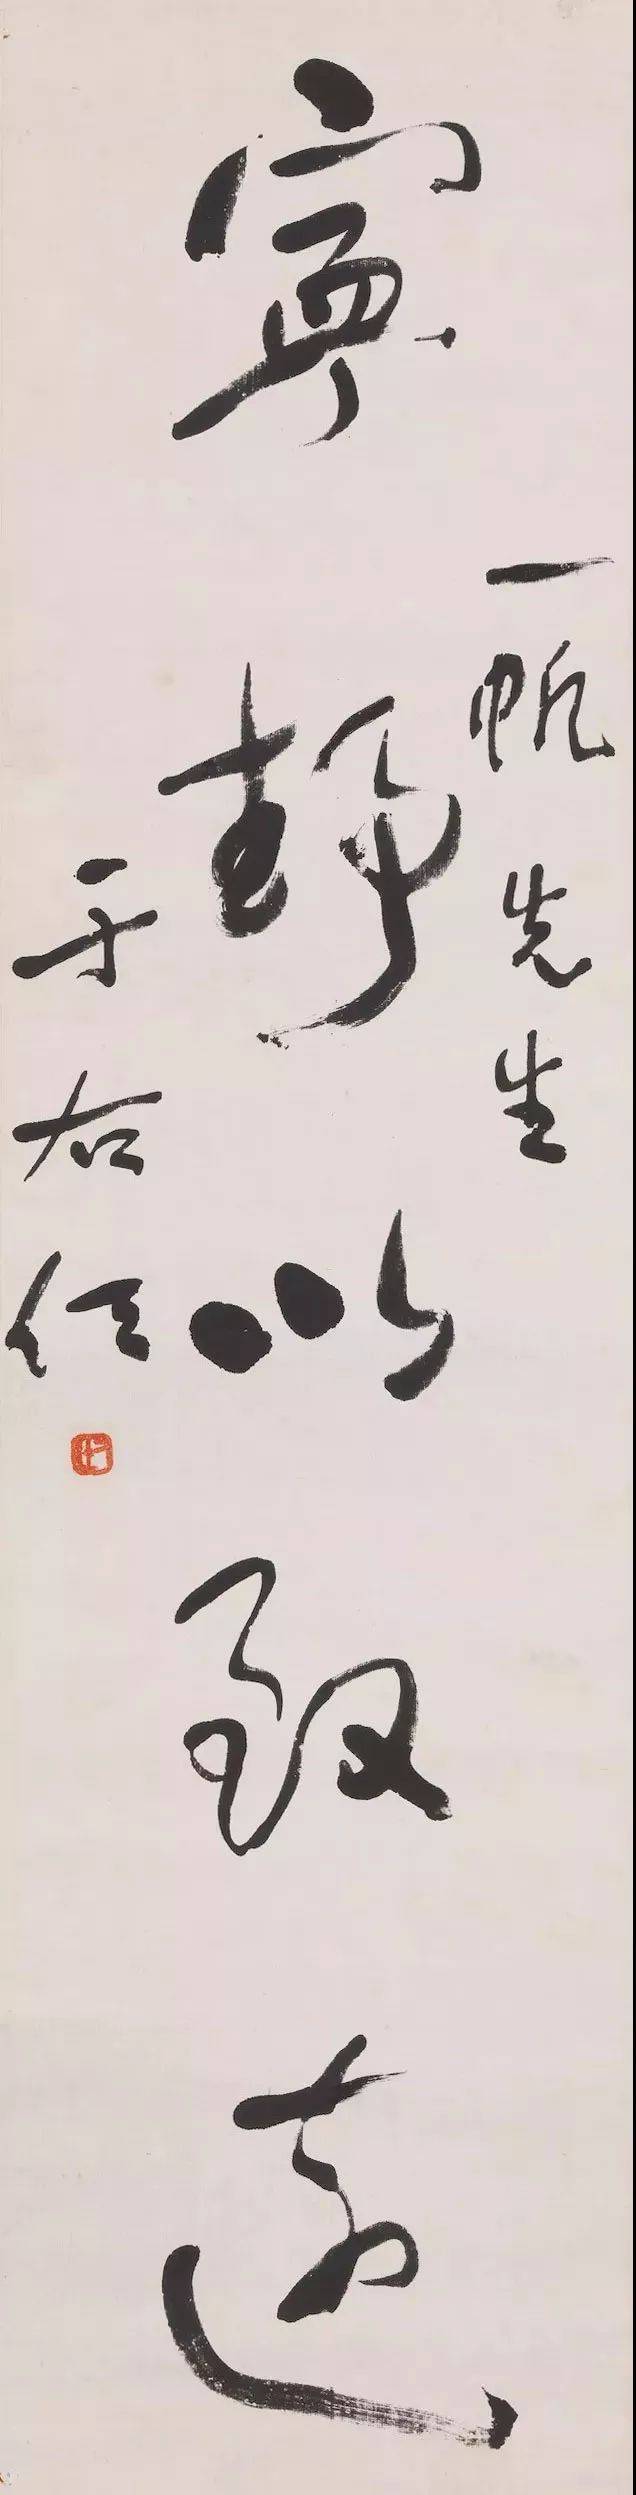 一帆先生
寧靜以致遠
于右任